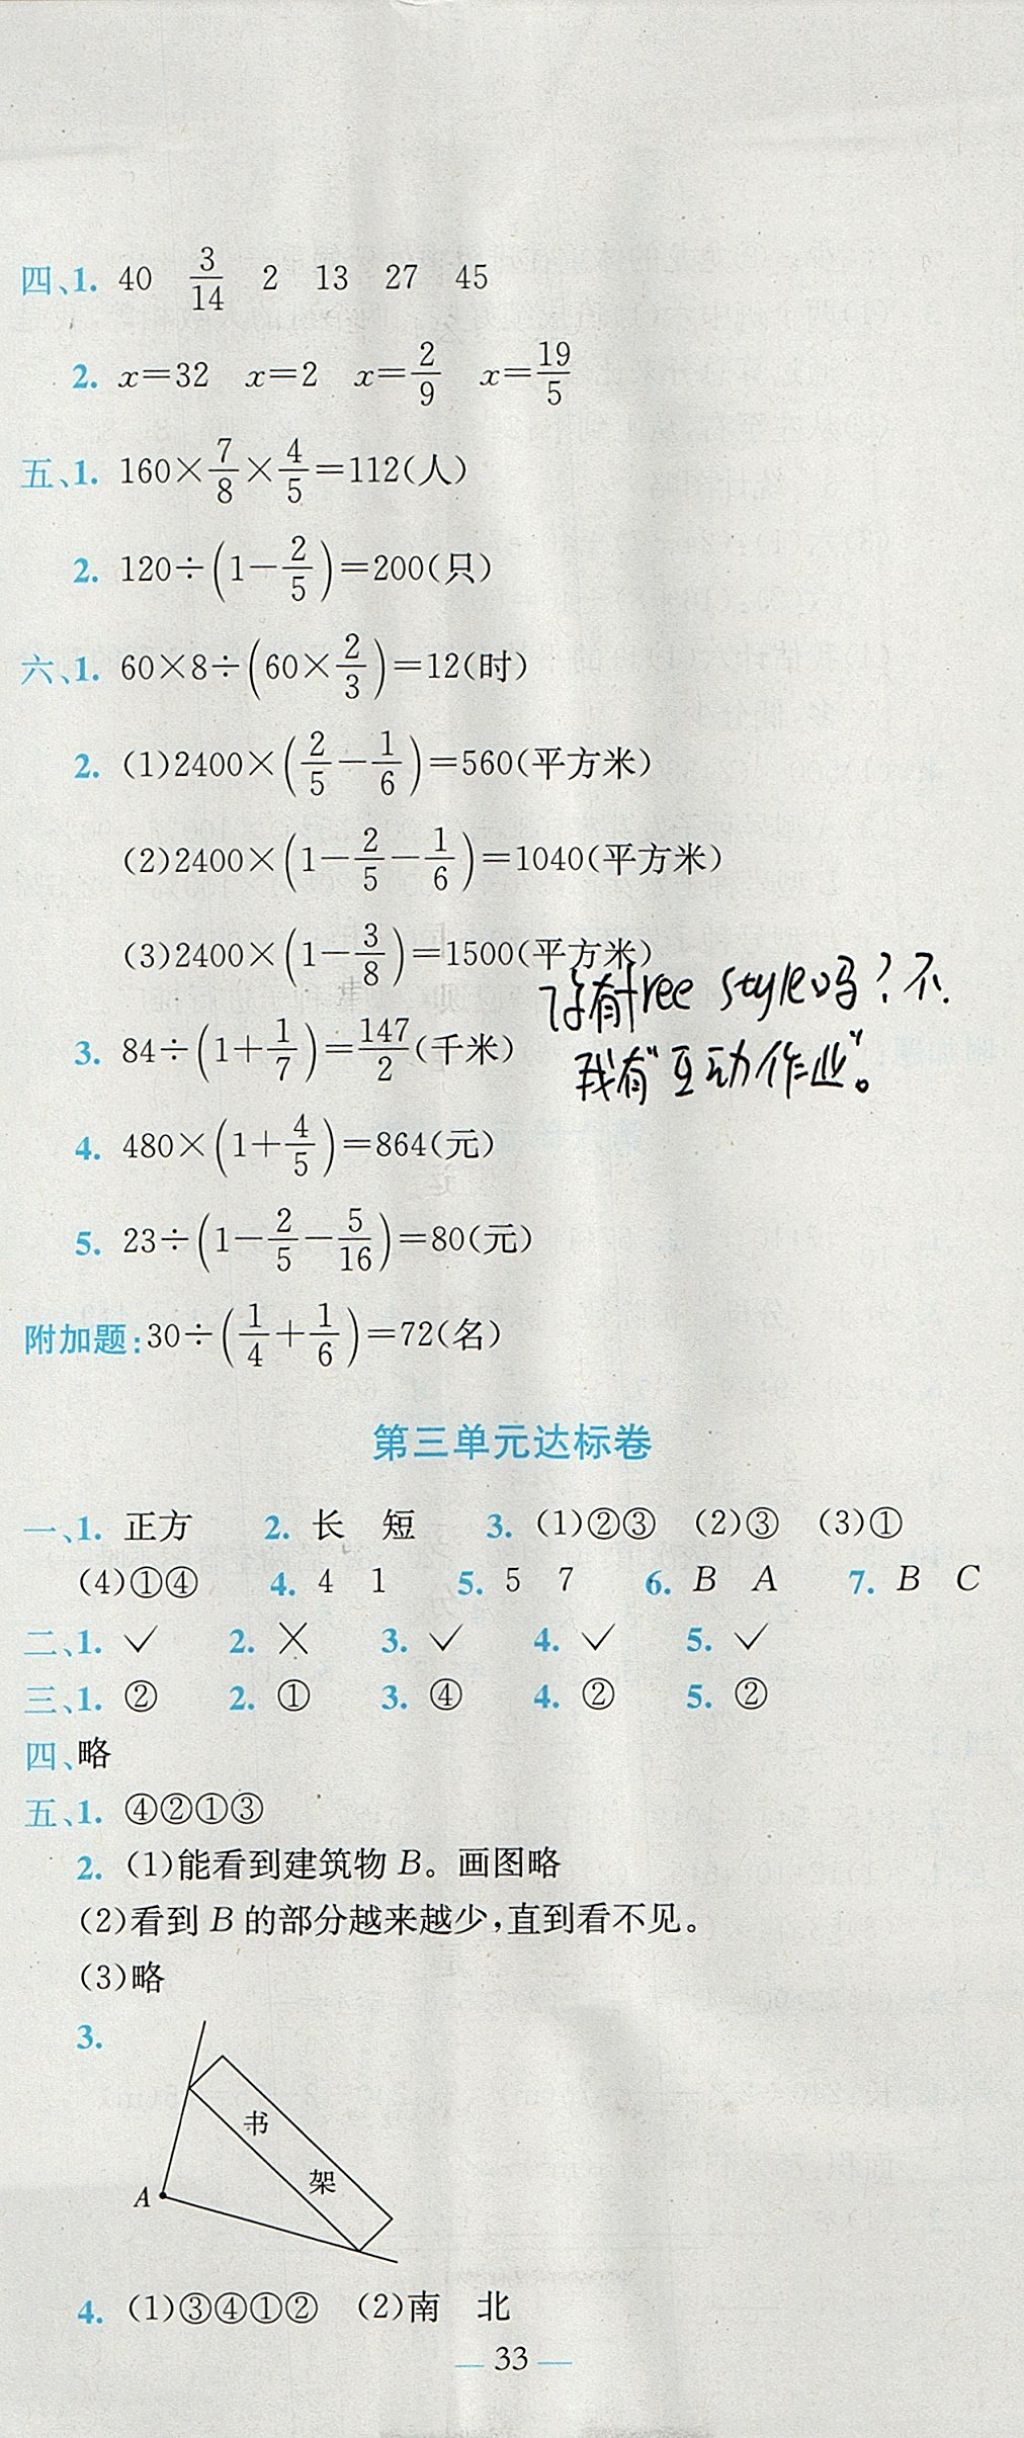 四、1. 40 3/14 2 13 27 45
2. x=32 x=2 x=2/9 x=19/5
五、1. 160×7/8×4/5=112(人)
2. 120÷(1-2/5)=200(只)
六、1. 60×8÷(60×2/3)=12(时)
2. (1)2400×(2/5-1/6)=560(平方米)
(2)2400×(1-2/5-1/6)=1040(平方米)
(3)2400×(1-3/8)=1500(平方米)
没有free style吗?不.
3. 84÷(1+1/7)=147/2(千米)
我有“互动作业”。
4. 480×(1+4/5)=864(元)
5. 23÷(1-2/5-5/16)=80(元)
附加题:30÷(1/4+1/6)=72(名)
第三单元达标卷
一、1. 正方 2. 长 短 3. (1)②③ (2)③ (3)①
(4)①④ 4. 4 1 5. 5 7 6. B A 7. B C
二、1. ✓ 2. × 3. ✓ 4. ✓ 5. ✓
三、1. ② 2. ① 3. ④ 4. ② 5. ②
四、略
五、1. ④②①③
2. (1)能看到建筑物 B。画图略
(2)看到 B 的部分越来越少,直到看不见。
(3)略
3.
书
架
A
4. (1)③④①② (2)南 北
— 33 —